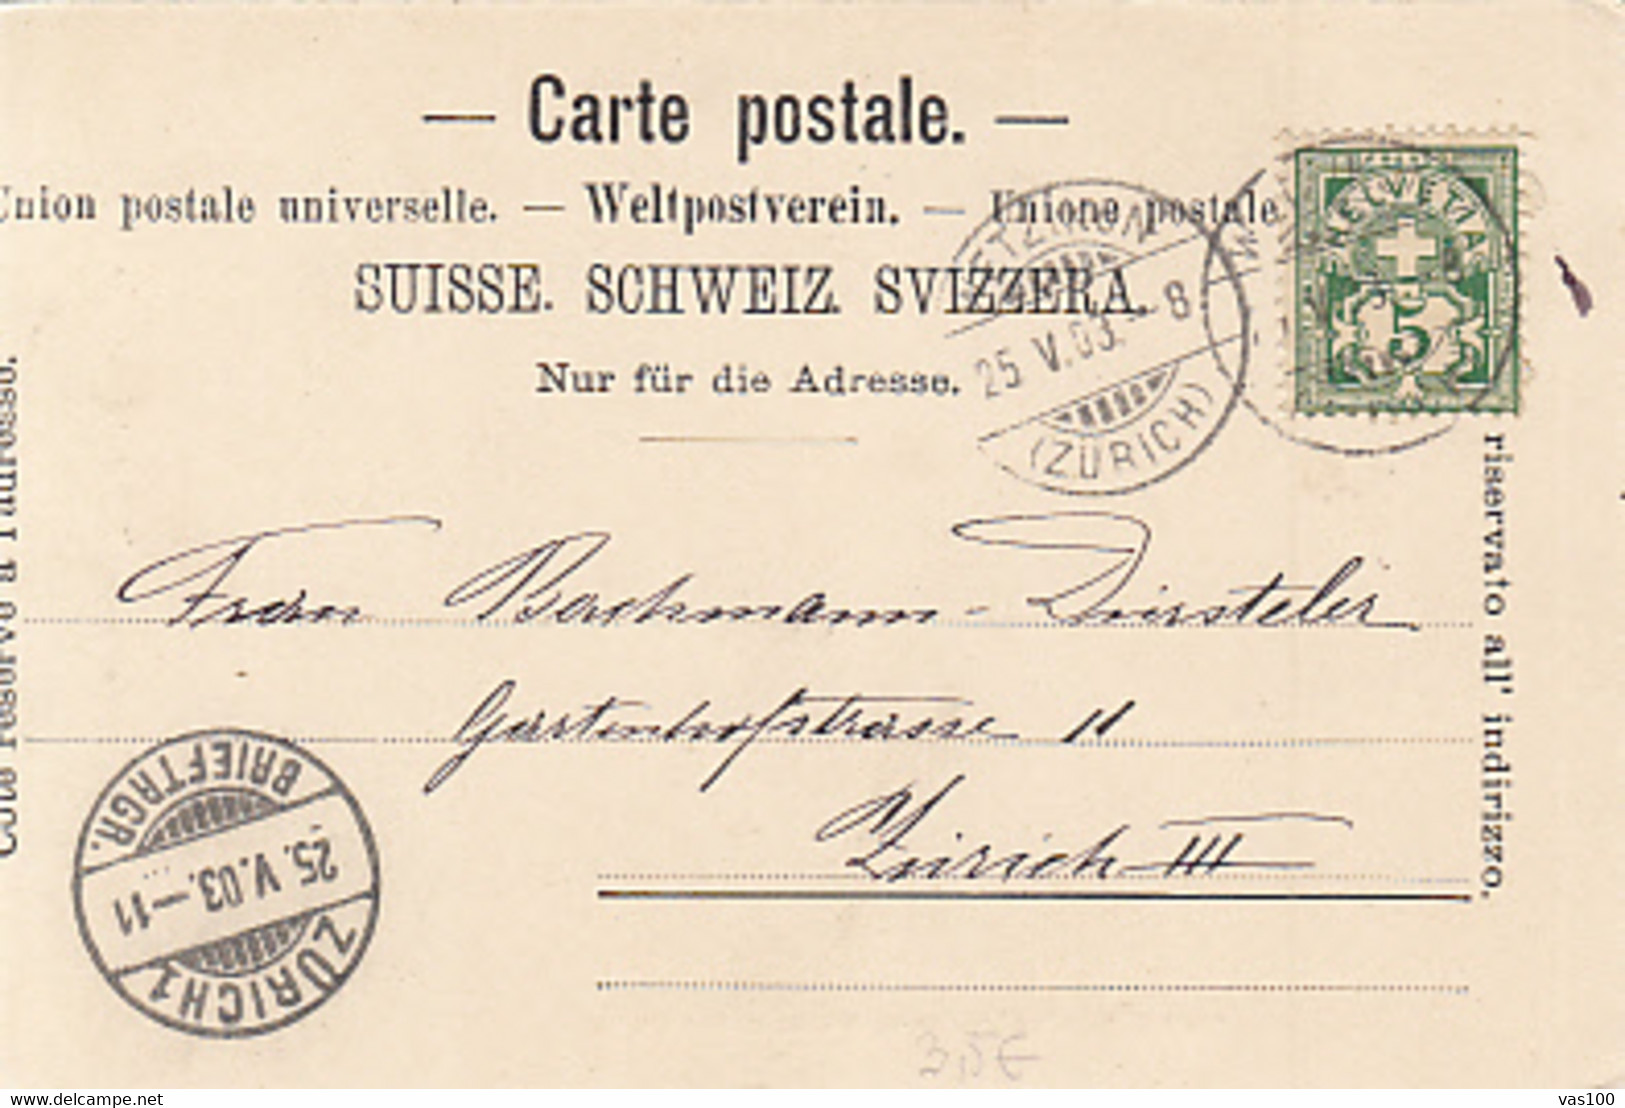 — Carte postale. —
Union postale universelle. — Weltpostverein. — Unione postale
SUISSE. SCHWEIZ. SVIZZERA.
Nur für die Adresse.
HELVETIA
5
ETZIKON
25. V. 03. - 8
(ZÜRICH)
Côté réservé à l'adresse.
riservato all' indirizzo.
Frau Bachmann-Dirsteler
Gartenhofstrasse 11
Zürich III
ZÜRICH 1
25. V. 03. - 11
BRIEFTRGR.
3,5€
https://www.delcampe.net
vas100